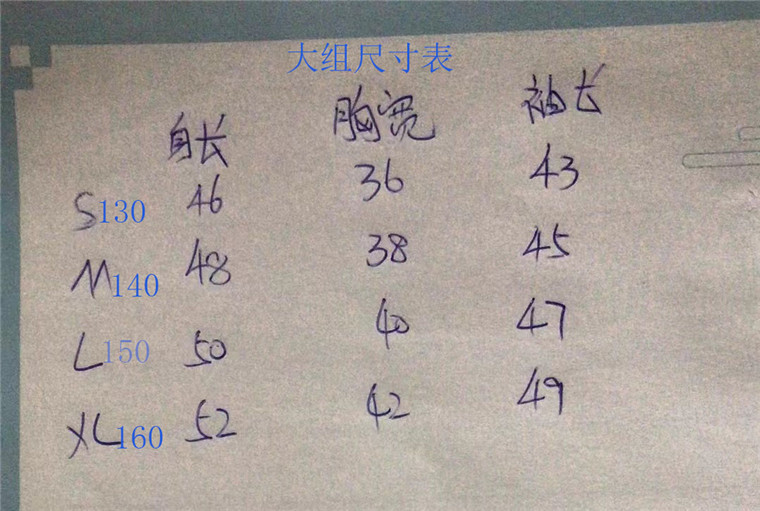 大组尺寸表
身长 胸宽 袖长
S130 46 36 43
M140 48 38 45
L150 50 40 47
XL160 52 42 49